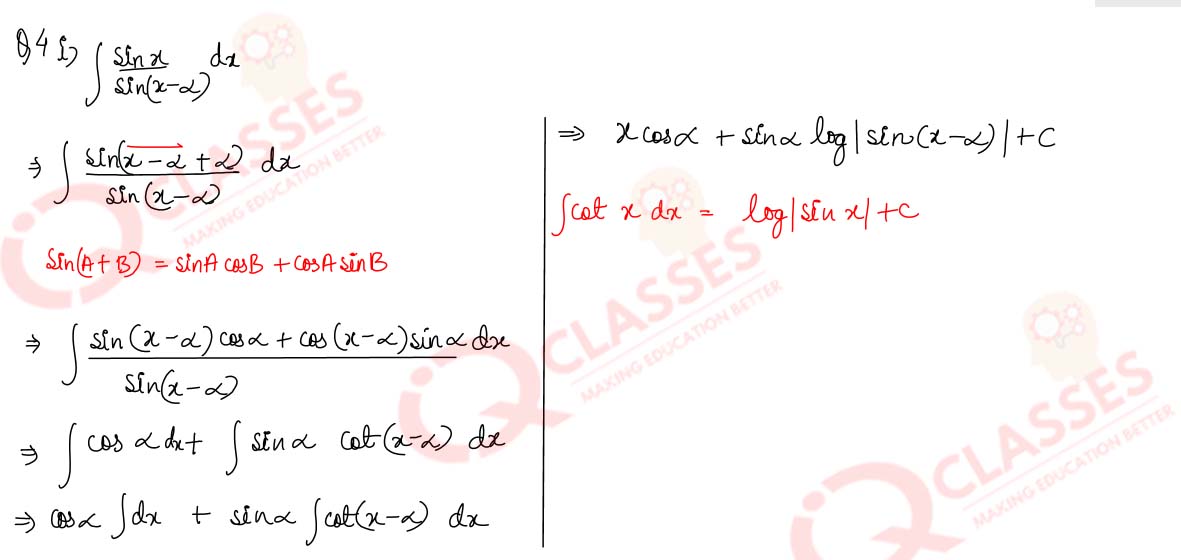 Q4 i) ∫ sin x / sin(x-α) dx
⇒ ∫ sin(x-α+α) / sin(x-α) dx
sin(A+B) = sinA cosB + cosA sinB
⇒ ∫ sin(x-α) cosα + cos(x-α) sinα dx / sin(x-α)
⇒ ∫ cos α dx + ∫ sinα cot(x-α) dx
⇒ cosα ∫dx + sinα ∫cot(x-α) dx
⇒ x cosα + sinα log|sin(x-α)| + C
∫cot x dx = log|sin x| + C
IQ CLASSES
MAKING EDUCATION BETTER
IQ CLASSES
MAKING EDUCATION BETTER
IQ CLASSES
MAKING EDUCATION BETTER